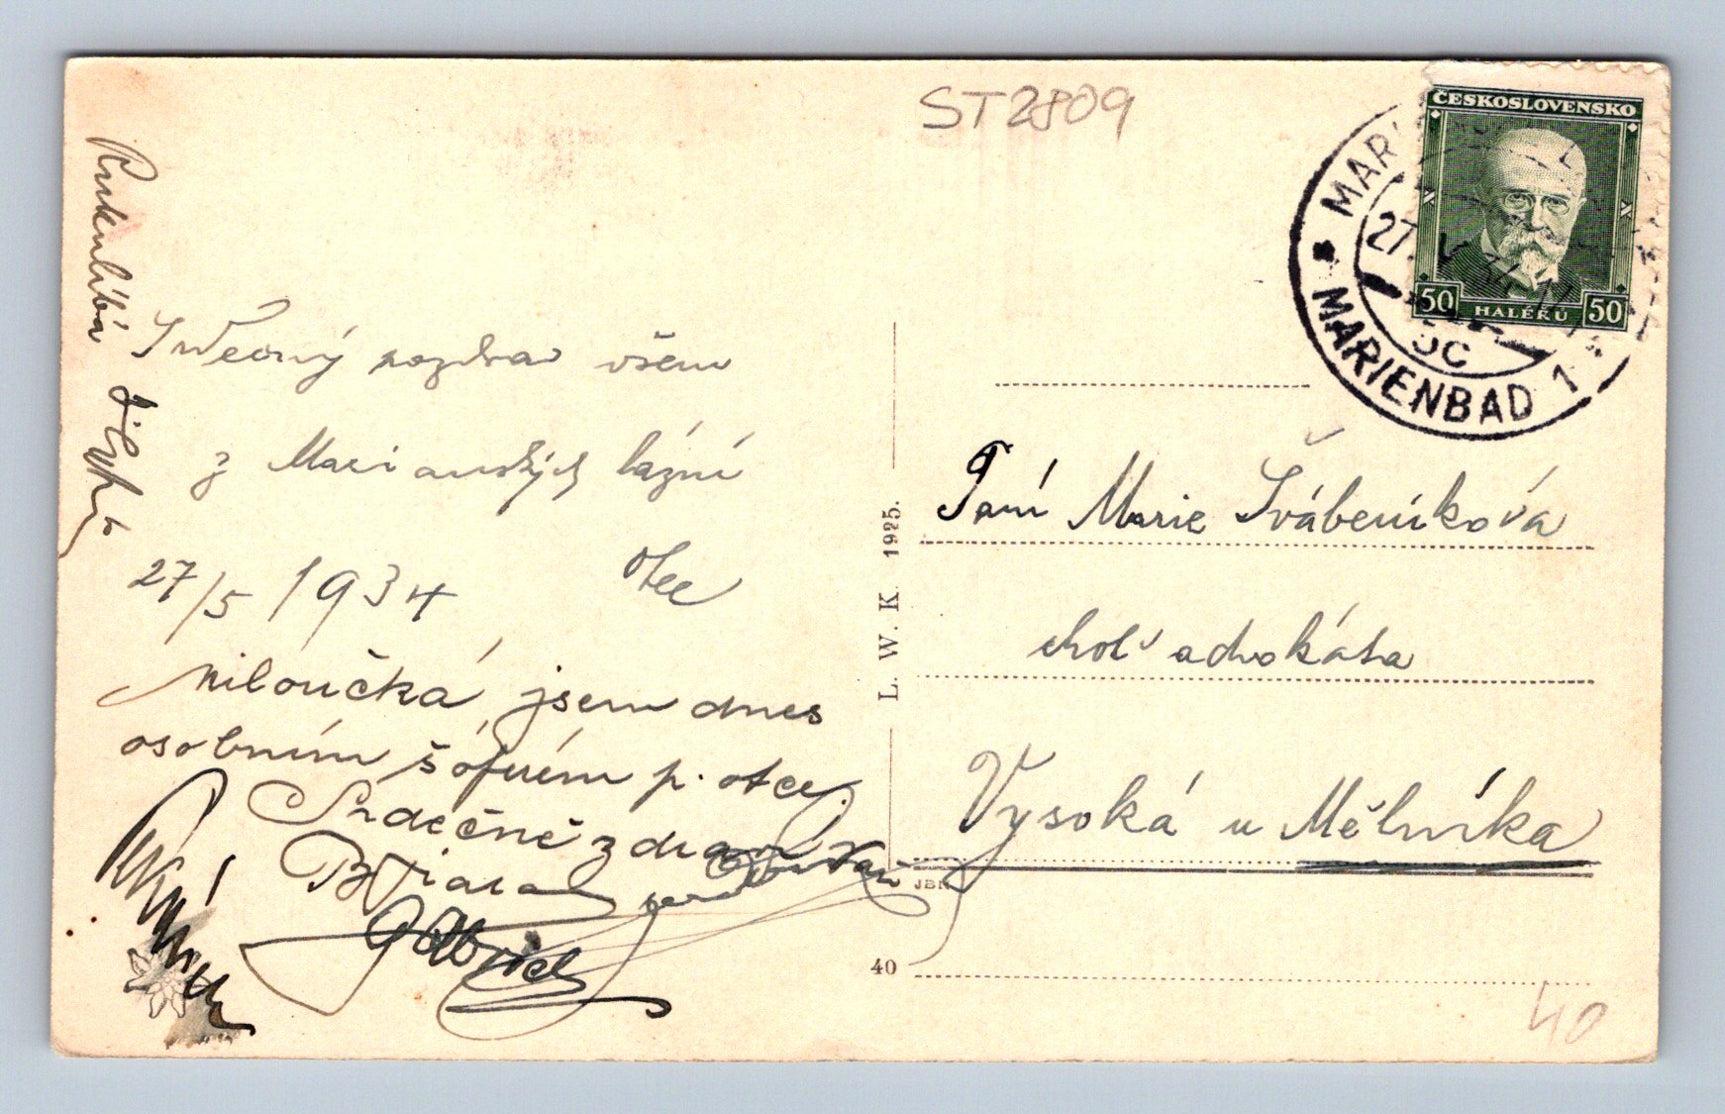 ST2809
ČESKOSLOVENSKO
50 HALÉŘŮ 50
MAR
27. V 34
5C
MARIENBAD 1
Rukulíbá
Srdečný pozdrav všem
z Marianských lázní
27/5 1934 otec
Miloučká, jsem dnes
osobním šoférem p. otce.
Srdečně zdraví
L. W. K. 1925.
Paní Marie Švábeníková
choť advokáta
Vysoká u Mělníka
JBN
40
40